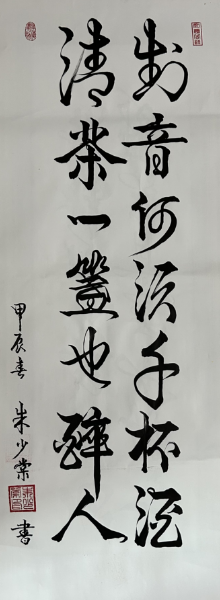 知音何须千杯酒
清茶一盞也醉人
甲辰春 朱少棠 書